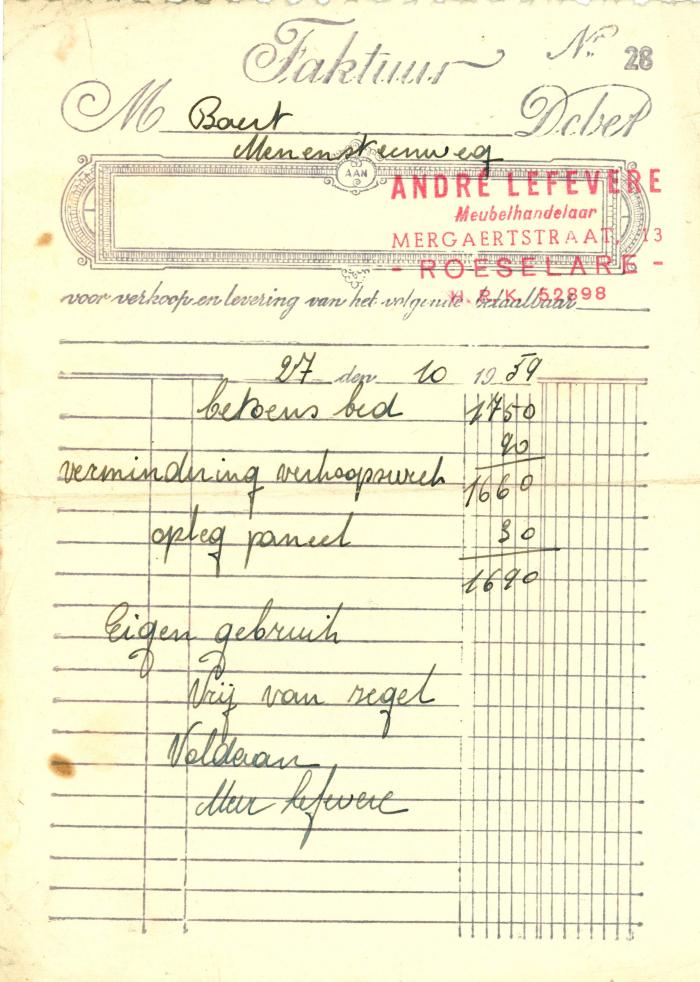 Faktuur Nr 28
M Baert Debet
Menensteenweg
AAN
ANDRÉ LEFEVERE
Meubelhandelaar
MERGAERTSTRAAT, 13
- ROESELARE -
H. R. K. 52898
voor verkoop en levering van het volgende betaalbaar
27 den 10 19 59
bed 1750
90
vermindering 1660
opleg paneel 30
1690
Eigen gebruik
Vrij van zegel
Voldaan
Lefevere